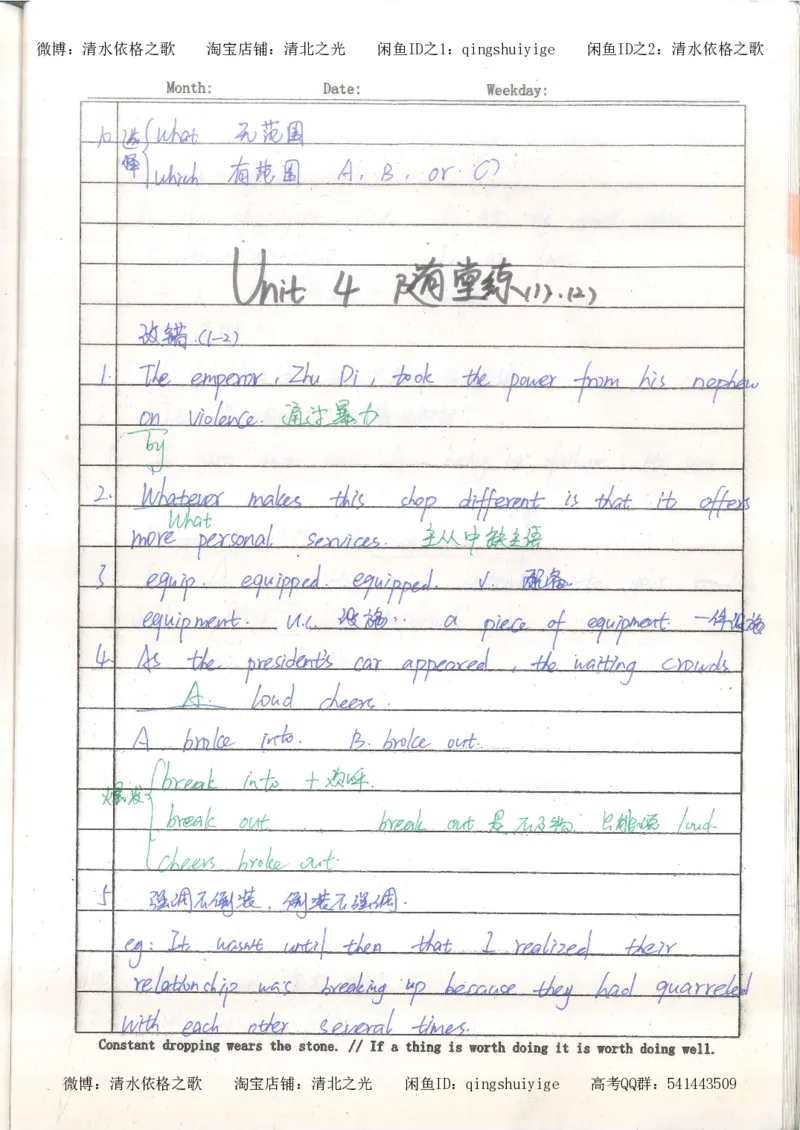 微博：清水依格之歌 淘宝店铺：清北之光 闲鱼ID之1：qingshuiyige 闲鱼ID之2：清水依格之歌
Month: Date: Weekday:
10 选择 { what 无范围
which 有范围 A, B, or C?
Unit 4 随堂练(1).(2)
改错.(1-2)
1. The emperor, Zhu Di, took the power from his nephew
on violence. 通过暴力
by
2. Whatever makes this shop different is that it offers
What
more personal services. 主从中缺主语
3 equip. equipped equipped. v. 配备
equipment. u.c. 设施.. a piece of equipment. 一件设施
4. As the president's car appeared, the waiting crowds
A. loud cheers.
A broke into. B. broke out.
爆发 { break into + 欢呼.
break out. break out 是不及物 loud.
cheers broke out.
5 强调不倒装, 倒装不强调.
eg: It wasn't until then that I realized their
relationship was breaking up because they had quarreled
with each other several times.
Constant dropping wears the stone. // If a thing is worth doing it is worth doing well.
微博：清水依格之歌 淘宝店铺：清北之光 闲鱼ID：qingshuiyige 高考QQ群：541443509